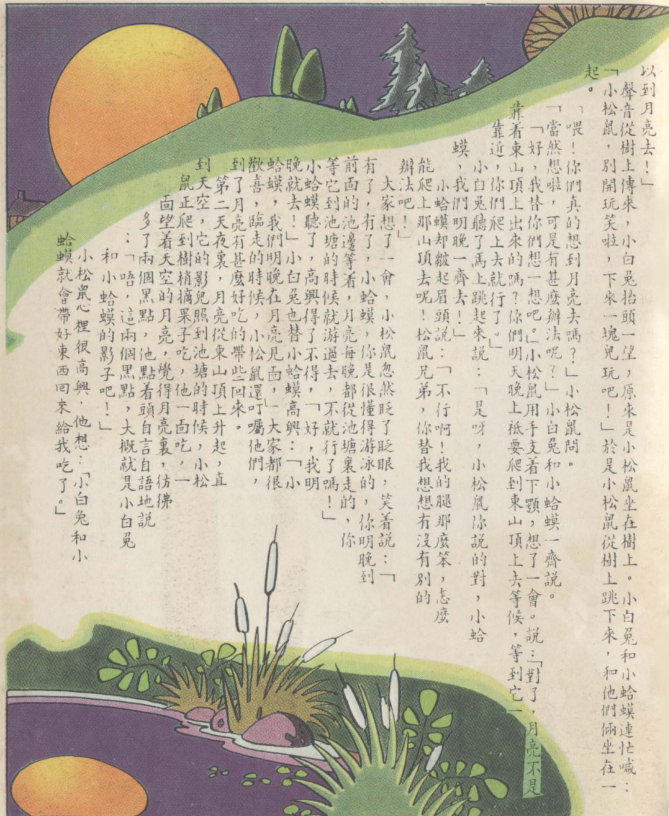 以到月亮去！」
聲音從樹上傳來，小白兎抬頭一望，原來是小松鼠坐在樹上。小白兎和小蛤蟆連忙喊：
「小松鼠，別開玩笑啦，下來一塊兒玩吧！」於是小松鼠從樹上跳下來，和他們倆坐在一
起。
「喂！你們真的想到月亮去嗎？」小松鼠問。
「當然想啦，可是有甚麼辦法呢？」小白兎和小蛤蟆一齊說。
「好，我替你們想一想吧。」小松鼠用手支着下顎，想了一會。說：「對了，月亮不是
靠着東山頂上出來的嗎？你們明天晚上祗要爬到東山頂上去等候，等到它一
靠近，你們爬上去就行了。」
小白兎聽了馬上跳起來說：「是呀，小松鼠你說的對，小蛤
蟆，我們明晚一齊去！」
小蛤蟆却皺起眉頭說：「不行啊！我的腿那麼笨，怎麼
能爬上那山頂去呢！松鼠兄弟，你替我想想有沒有別的
辦法吧！」
大家想了一會，小松鼠忽然眨了眨眼，笑着說：「
有了，有了，小蛤蟆，你是很懂得游泳的，你明晚到
前面的池邊等着，月亮每晚都從池塘裏走的，你
等它到池塘的時候就游過去，不就行了嗎！」
小蛤蟆聽了，高興得了不得，「好，我明
晚就去！」小白兎也替小蛤蟆高興：「小
蛤蟆，我們明晚在月亮見面，」大家都很
歡喜，臨走的時候，小松鼠還叮囑他們，
到了月亮有甚麼好吃的帶些回來。
第二天夜裏，月亮從東山頂上升起，直
到天空，它的影兒照到池塘的時候，小松
鼠正爬到樹梢摘果子吃，他一面吃，一
面望着天空的月亮，覺得月亮裏，彷彿
多了兩個黑點，他點着頭自言自語地說
：「唔，這兩個黑點，大概就是小白兎
和小蛤蟆的影子吧！」
小松鼠心裡很高興，他想：「小白兎和小
蛤蟆就會帶好東西回來給我吃了。」